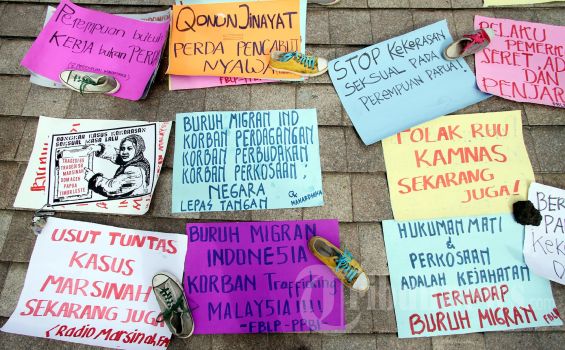 Perempuan butuh
Kerja bukan PERDA
QANUN JINAYAT
PERDA PENCABUT
NYAWA
FBLP-PRBI
STOP KEKERASAN
SEKSUAL PADA
PEREMPUAN PAPUA!
PELAKU
SERET, AD
DAN
PENJAR
BONGKAR KASUS KEKERASAN
SEKSUAL MASA LALU
TRAGEDI
MARSINAH
ACEH
PAPUA
BURUH MIGRAN IND
KORBAN PERDAGANGAN
KORBAN PERBUDAKAN
KORBAN PERKOSAAN,
NEGARA
LEPAS TANGAN
TOLAK RUU
KAMNAS
SEKARANG
JUGA!
USUT TUNTAS
KASUS
MARSINAH
SEKARANG JUGA
(Radio Marsinah, FM
BURUH MIGRAN
INDONESIA
KORBAN Trafficking
MALAYSIA !!!!
-FBLP-PRBI-
HUKUMAN MATI
&
PERKOSAAN
ADALAH KEJAHATAN
TERHADAP
BURUH MIGRAN
FBLP
BER
PA